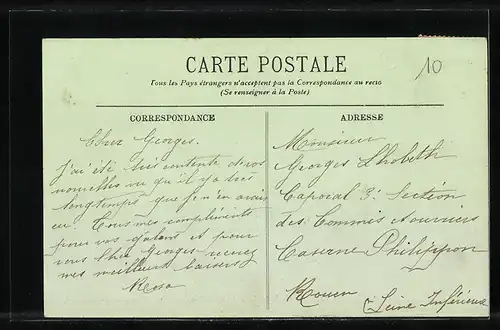 CARTE POSTALE
Tous les Pays étrangers n'acceptent pas la Correspondance au recto
(Se renseigner à la Poste)
10
CORRESPONDANCE
Cher Georges.
J'ai été très contente de vos
nouvelles vu qu'il y a très
longtemps que je n'en avais
eu. Tous mes compliments
pour vos galons et pour
vous Cher Georges recevez
mes meilleurs baisers
Rosa
ADRESSE
Monsieur
Georges
Caporal 3e Section
des Commis et ouvriers
Caserne Philippon
Rouen
(Seine Inférieure